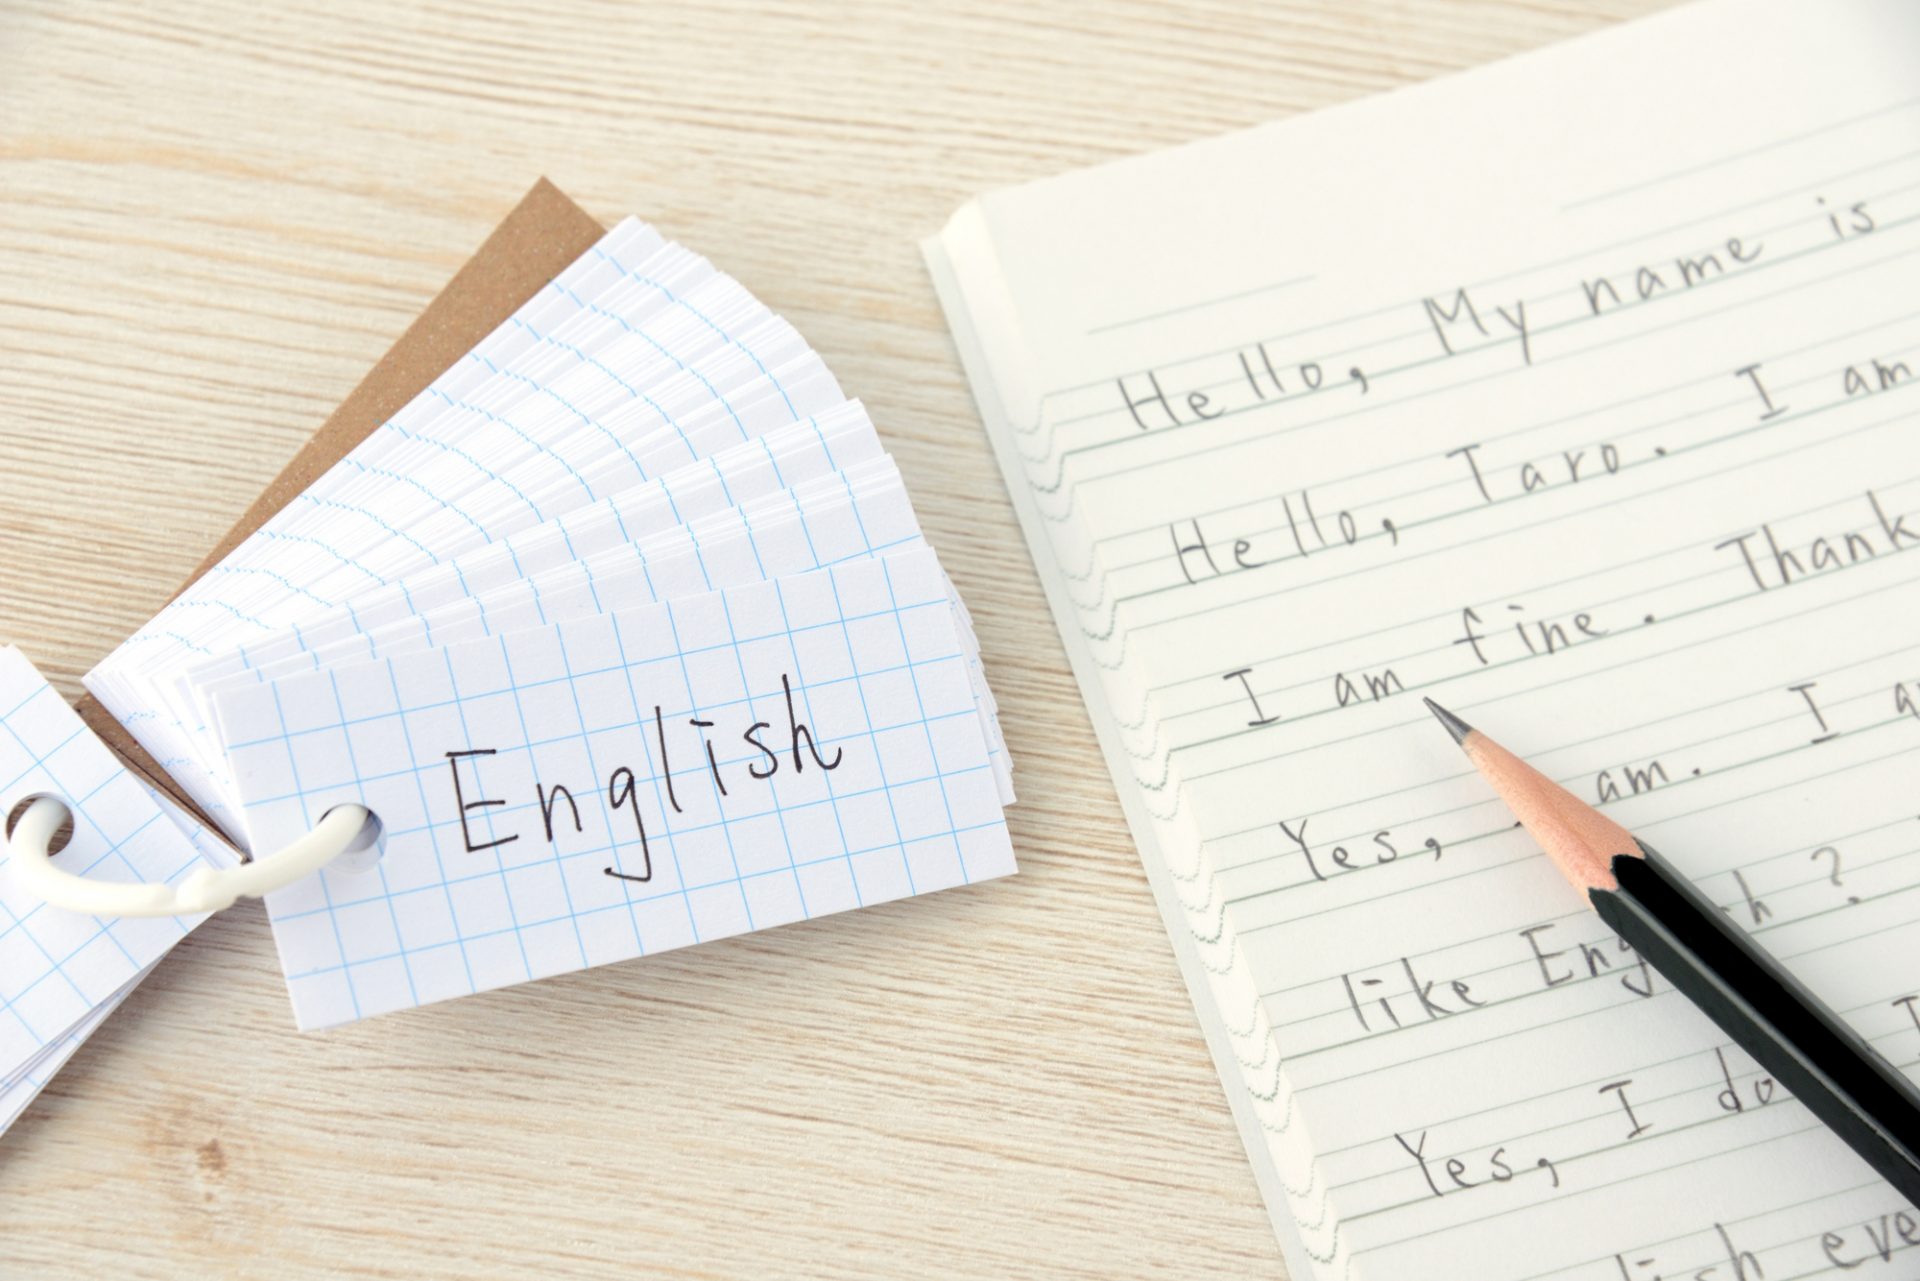 English
Hello, My name is
Hello, Taro. I am
I am fine. Thank
Yes, am. I
like ?
Yes, I do